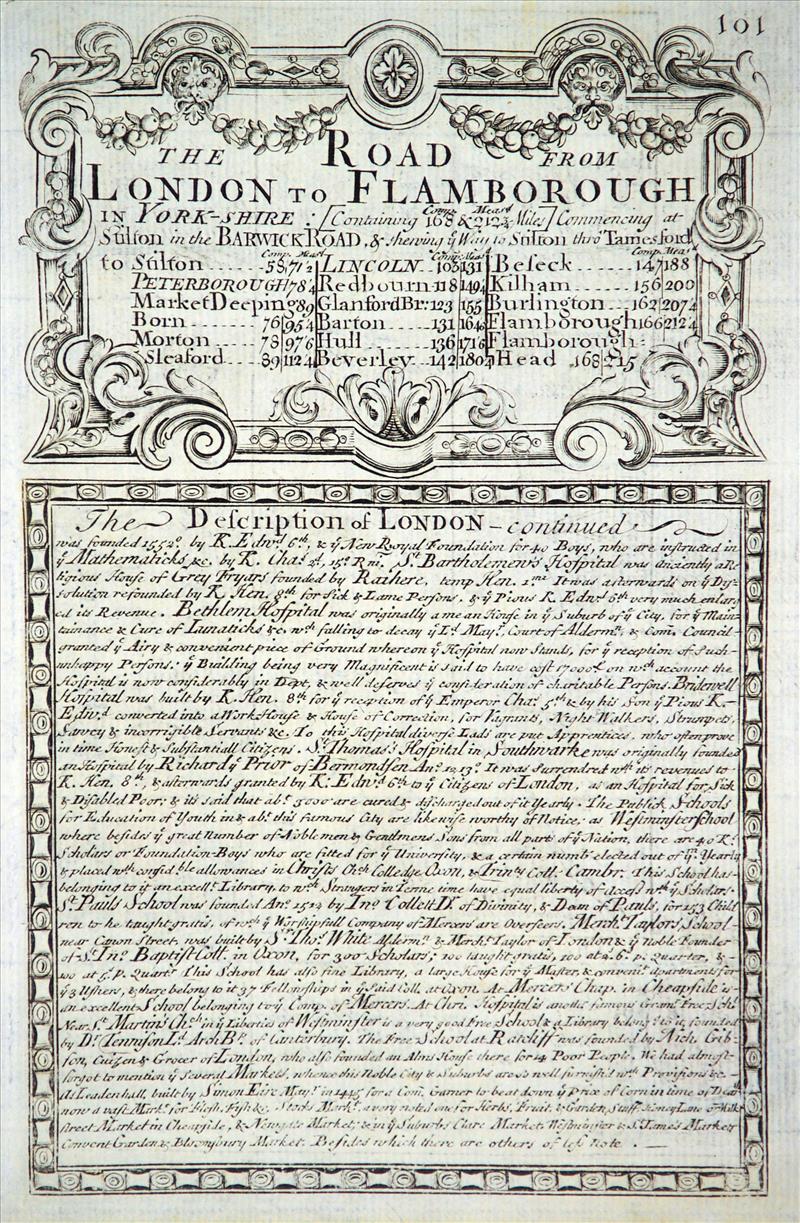 101
THE ROAD FROM
LONDON TO FLAMBOROUGH
IN YORK-SHIRE : [Containing Comp. 168 & Meas. 212¾ Miles] Commencing at
Stilton in the BARWICK ROAD, & shewing ÿ Way to Stilton thro' Tamesford
Comp. Meas. Comp. Meas. Comp. Meas.
to Stilton 58 71 2 LINCOLN 103 131 Beseck 147 188
PETERBOROUGH 78 4 Redbourn 118 149 4 Kilham 156 200
Market Deeping 89 Glanford Br: 123 155 Burlington 162 207 4
Born 76 95 4 Barton 131 164 6 Flamborough 166 212 4
Morton 78 97 6 Hull 136 171 6 Flamborough
Sleaford 89 112 4 Beverley 142 180 4 Head 168 215
The Description of LONDON - continued
was founded 1552 by K. Edwd 6th, & ÿ New Royal Foundation for 40 Boys, who are instructed in
ÿ Mathematicks &c. by K. Chas 2d, 15° Rni. St Bartholemew's Hospital was anciently a Re-
ligious House of Grey Fryars founded by Raihere, temp. Hen. 1mi It was afterwards on ÿ Dis-
solution refounded by K. Hen. 8th for Sick & Lame Persons, & ÿ Pious K. Edwd 6th very much enlarg
ed its Revenue. Bethlem Hospital was originally a mean House in ÿ Suburb of ÿ City, for ÿ Main-
tainance & Cure of Lunaticks &c. wch falling to decay ÿ Ld Mayr, Court of Aldermn, & Com. Council
granted ÿ Airy & convenient piece of Ground whereon ÿ Hospital now Stands, for ÿ reception of Such
unhappy Persons: ÿ Building being very Magnificent is said to have cost 17000£ on wch account the
Hospital is now considerably in Dept, & well deserves ÿ consideration of charitable Persons. Bridewell
Hospital was built by K. Hen. 8th for ÿ reception of ÿ Emperor Cha: 5th & by his Son ÿ Pious K.
Edwd converted into a Work House & House of Correction, for Vagrants, Night Walkers, Strumpets,
Sawcy & incorrigible Servants &c. To this Hospital diverse Lads are put Apprentices, who often prove
in time Honest & Substantiall Citizens. St Thomas's Hospital in Southwarke was originally founded
an Hospital by Richard ÿ Prior of Bermondsen Ano 1213. It was Surrendred wth its revenues to
K. Hen. 8th, & afterwards granted by K. Edwd 6th to ÿ Citizens of London, as an Hospital for Sick
& Disabled Poor; & its said that abt 3000 are cured & discharged out of it Yearly. The Publick Schools
for Education of Youth in & abt this famous City are likewise worthy of Notice; as Westminster School
where besides ÿ great Number of Noblemen & Gentlmens Sons from all parts of ÿ Nation, there are 40 Ks
Scholars or Foundation-Boys who are fitted for ÿ University, & a certain numbr elected out of ÿm Yearly
& placed wth considble allowances in Christs Chch Colledge Oxon, & Trinty Coll. Cambr. This School has
belonging to it an excellt Library, to wch Strangers in Terme time have equal liberty of Access wth ÿ Scholars.
St Pauls School was founded Ano 1512 by Jno Collett Dr of Divinity, & Dean of Pauls, for 153 Child
ren to be taught gratis, of wch ÿ Worshipfull Company of Mercers are Overseers. Mercht Taylors School
near Canon Street, was built by Sr Tho: White Alderm: & Mercht Taylor of London & ÿ Noble Founder
of St Jno Baptist Coll. in Oxon, for 300 Scholars; 100 taught gratis, 100 at 2s. 6d. p. Quarter, &
100 at 5s. p. Quartr This School has also fine Library, a large House for ÿ Master, & convent apartments for
ÿ 3 Ushers, & there belong to it 37 Fellowships in ÿ Said Coll. at Oxon. At Mercers Chap. in Cheapside is
an excellent School belonging to ÿ Comp. of Mercers. At Chri. Hospital is another famous Gram. Free Schl
Near St Martins Chch in ÿ Liberties of Westminster is a very good Free School & a Library belongg to it, founded
by Dr Tennyson Ld Arch Bp. of Canterbury. The Free School at Ratcliff was founded by Nich. Gib-
son, Citizen & Grocer of London, who also founded an Alms House there for 14 Poor People. We had almost
forgot to mention ÿ Several Markets, whence this Noble City & Suburbs are so well furnish'd wth Provisions &c.
As Leadenhall, built by Simon Eire Mayr in 1445 for a Com. Garner to beat down ÿ Price of Corn in time of Dearth
now a vast Markt for Flesh, Fish &c. Stocks Markt a very noted one for Herbs, Fruit, & Garden Stuff. Honey Lane or Milk
street Market in Cheapside, & Newgate Market; & in ÿ Suburbs Clare Market, Westminster & St James Market
Convent Garden & Bloomsbury Market. Besides which there are others of less note.